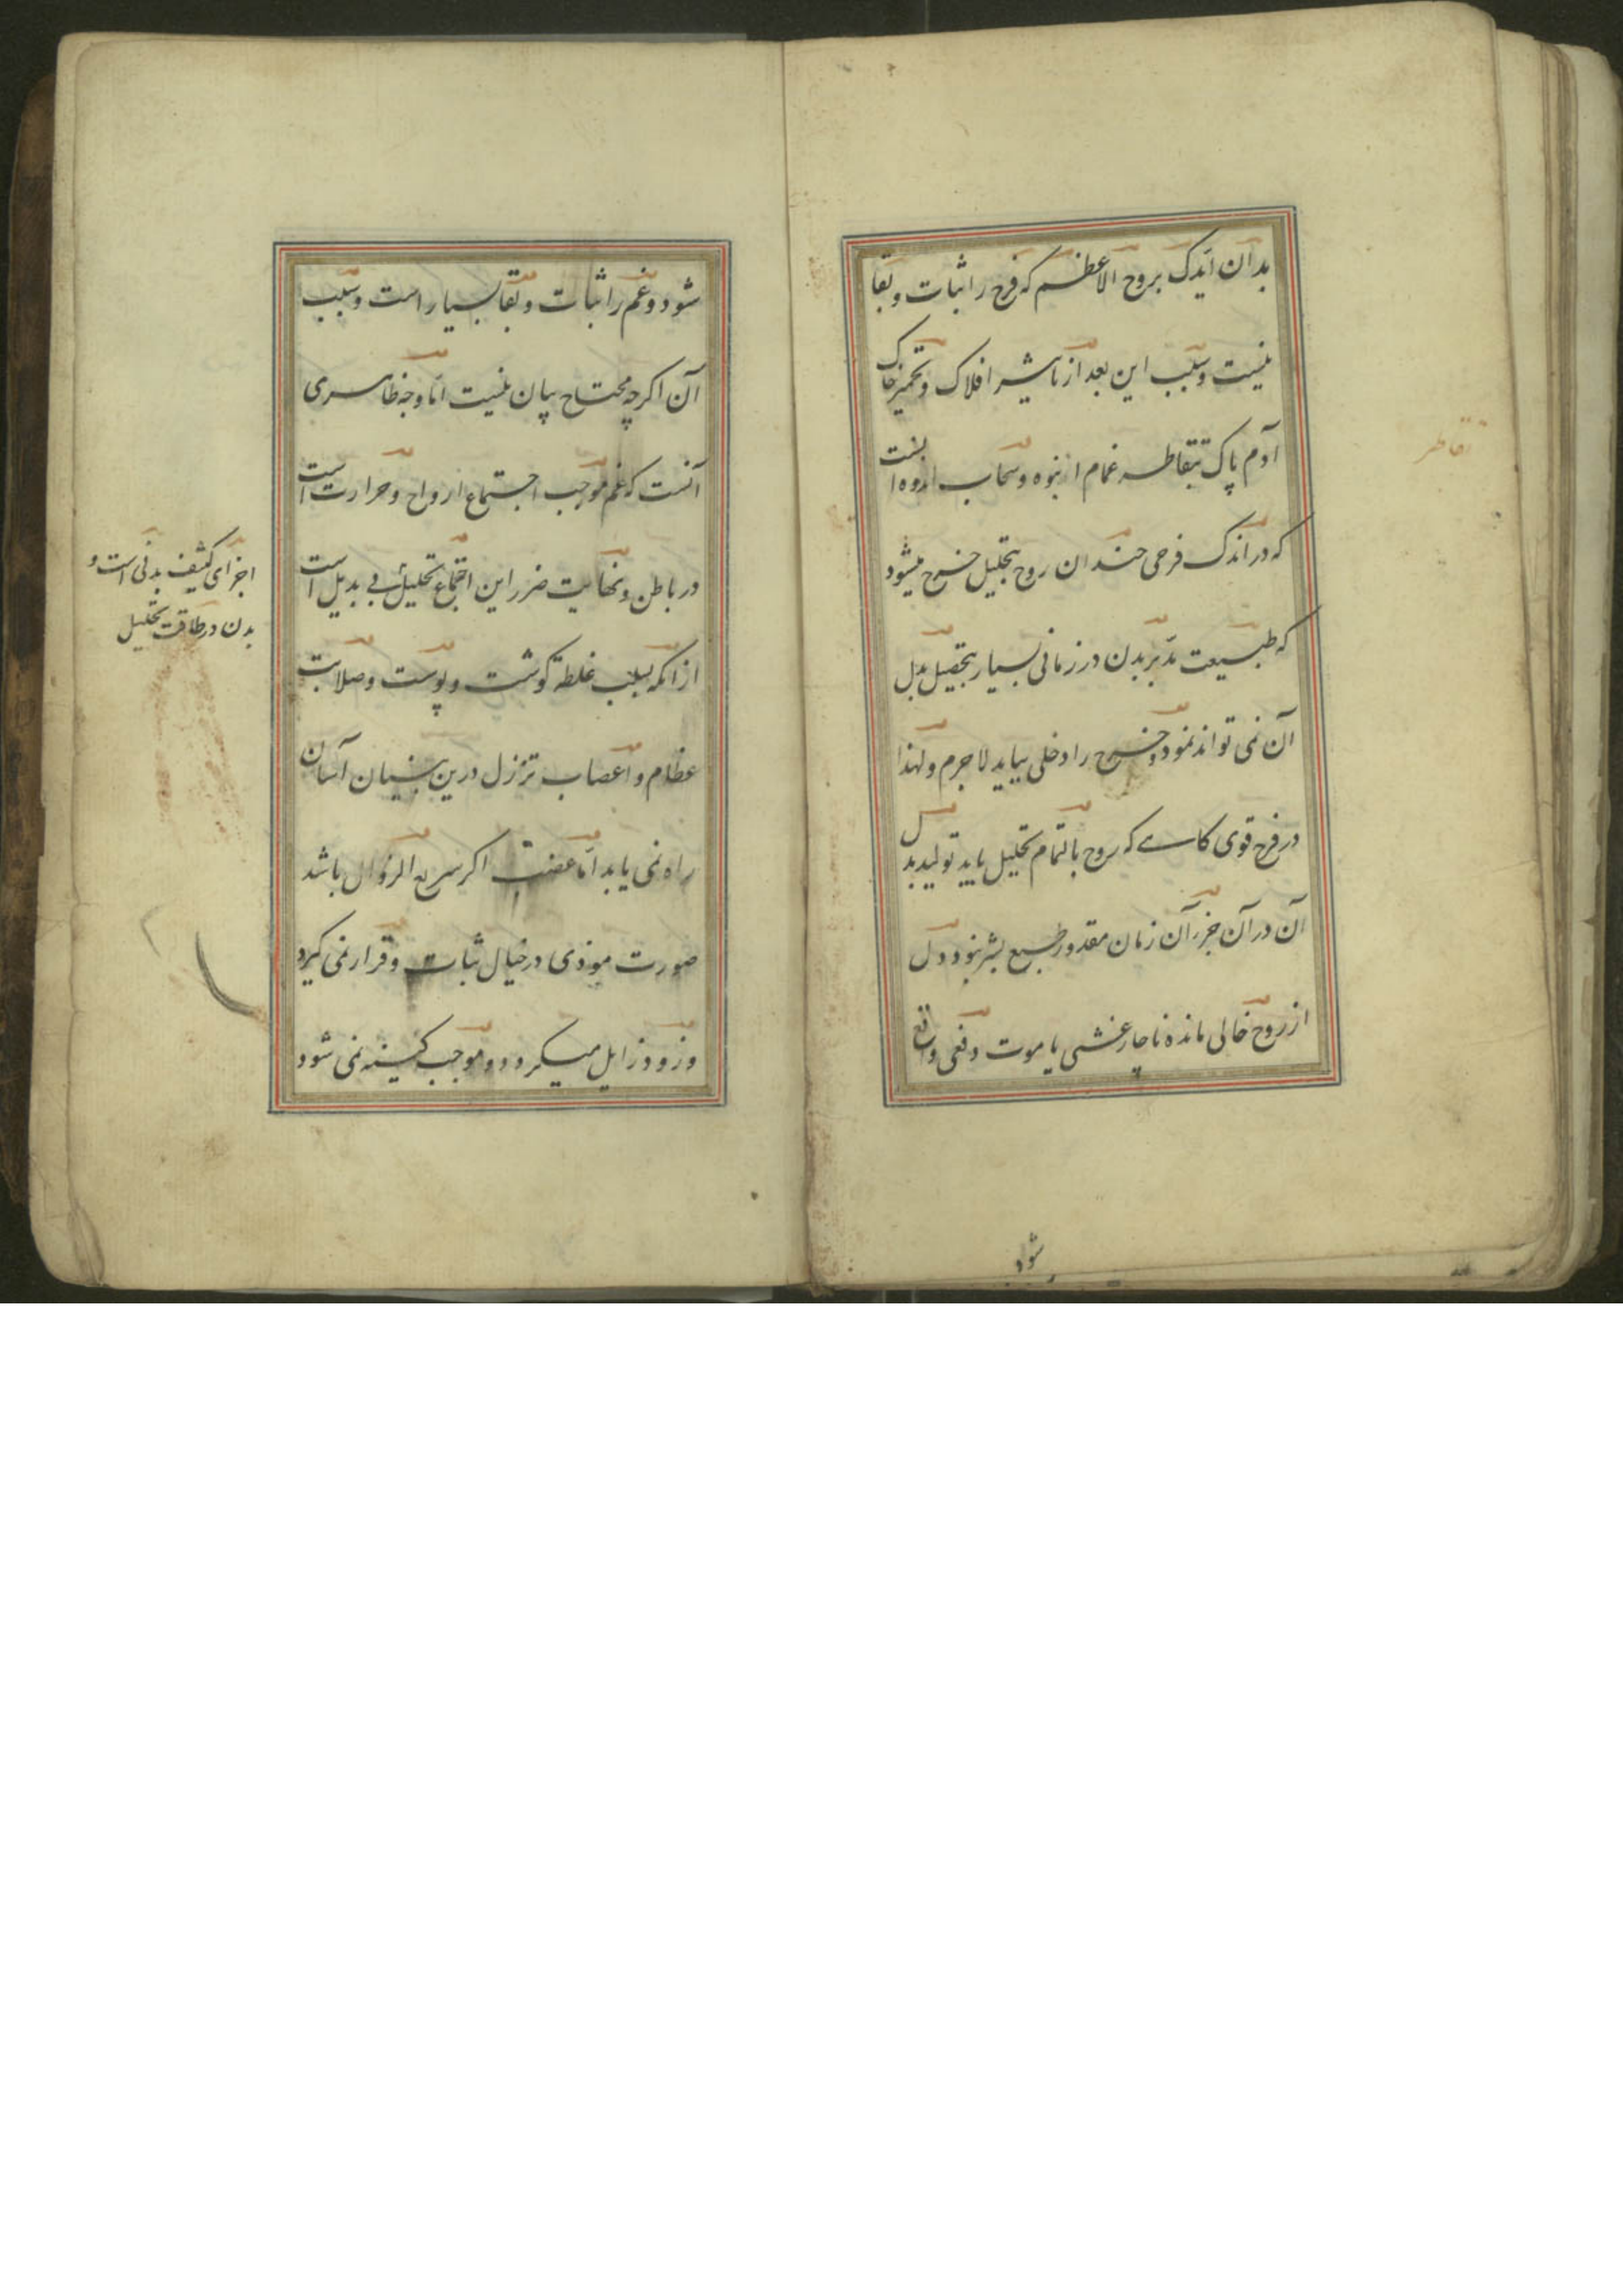 بدان ایدک بروح الاعظم که فرح را ثبات و بقا
نیست و سبب این بعد از تاثیر افلاک و تخمیر خاک
آدم پاک بتقاطر غمام انبوه و سحاب اندوه اینست
که در اندک فرحی چندان روح بتحلیل خرج میشود
که طبیعت مدّبر بدن در زمانی بسیار بتحصیل بدل
آن نمی تواند نمود و خرج را دخلی بباید لاجرم ولهذا
در فرح قوی کاهی که روح بالتمام تحلیل یابد تولید بدل
آن در آن جزء آن زمان مقدور طبع بشر نبود و دل
از روح خالی مانده ناچار غشی یا موت دفعی واقع
تقاطر
شود
شود و غم را ثبات و بقا بسیار است و سبب
آن اکرچه محتاج بیان نیست امّا وجه ظاهری
آنست که غم موجب اجتماع ارواح و حرارت است
در باطن و نهایت ضرر این اجتماع تحلیل بی بدیل است
از انکه بسبب غلظة کوشت و پوست و صلابت
عظام و اعصاب تزلزل درین بنیان آسان
راه نمی یابد امّا غضب اکر سریع الزوال باشد
صورت موذی در خیال ثبات و قرار نمی کیرد
و زود زایل میکردد و موجب کینه نمی شود
اجزای کثیف بدنی است و
بدن در طاقت تحلیل